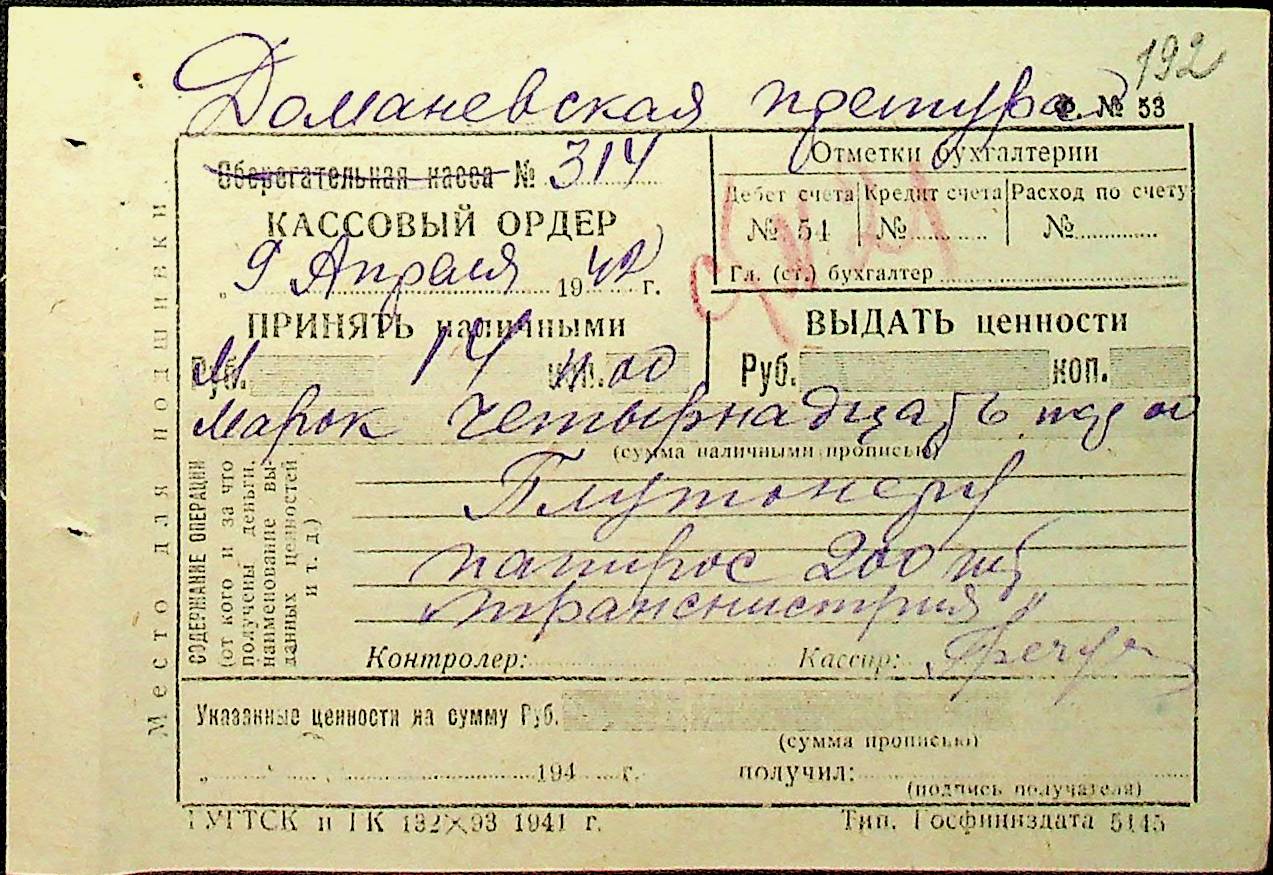 192
Доманевская претура
ф. № 53
Сберегательная касса № 314
КАССОВЫЙ ОРДЕР
„ 9 Апреля 1942 г.
Отметки бухгалтерии
Дебет счета Кредит счета Расход по счету
№ 51 № №
Гл. (ст.) бухгалтер
ПРИНЯТЬ наличными
ВЫДАТЬ ценности
Руб. М 14 коп. 00
Руб. коп.
Марок четырнадцать
(сумма наличными прописью)
Плутонеру
папирос 200 шт
„транснистрия"
СОДЕРЖАНИЕ ОПЕРАЦИИ
(от кого и за что
получены деньги,
наименование вы-
данных ценностей
и т. д.)
Контролер: Кассир:
Указанные ценности на сумму Руб.
(сумма прописью)
„ 194 г. получил:
(подпись получателя)
Место для подшивки
ГУГТСК и ГК 132×93 1941 г. Тип. Госфиниздата 5145